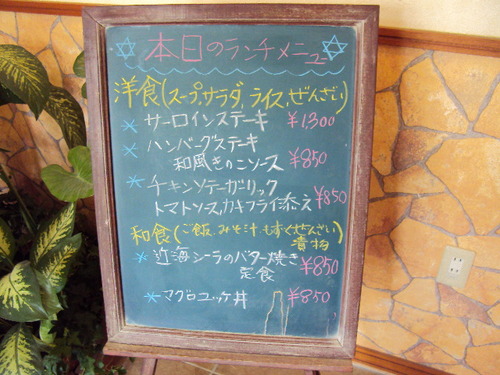 本日のランチメニュー
洋食(スープ,サラダ,ライス,ぜんざい)
サーロインステーキ ¥1,300
ハンバーグステーキ
和風きのこソース ¥850
チキンソテーガーリック
トマトソース,カキフライ添え ¥850
和食(ご飯,みそ汁,もずく,ぜんざい)
漬物
近海シーラのバター焼き
定食 ¥850
マグロユッケ丼 ¥850